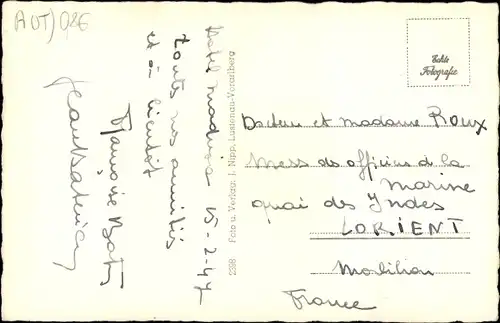 AUT) 086
Hotel Madrisa 15-2-47
Toutes nos amitiés
et à bientôt
Françoise
2398 Foto u. Verlag: J. Nipp, Lustenau-Vorarlberg
Echte
Fotografie
Docteur et madame Roux
Mess des officiers de la
Marine
quai des Indes
LORIENT
Morbihan
France